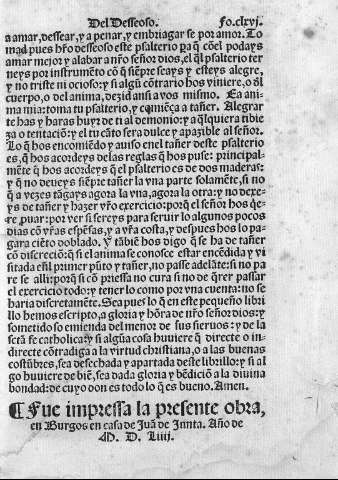 Del Desseoso. Fo.clxvj.
a amar, dessear, y a penar, y embriagar se por amor. To
mad pues hr̃o desseoso este psalterio pa q̃ cõel podays
amar mejor y alabar a nr̃o señor dios, el q̃l psalterio ter
neys por instrumẽto cõ q̃ siẽpre seays y esteys alegre,
y no triste ni ocioso: y si algũ cõtrario hos viniere, o ðl
cuerpo, o del anima, dezid ansi a vos mismo. Ea ani-
ma mia: toma tu psalterio, y comiẽça a tañer. Alegrar
te has y haras huyr de ti al demonio: y a q̃lquiera tibie
za o tentaciõ: y el tu cãto sera dulce y apazible al señor.
Lo q̃ hos encomiẽdo y auiso enel tañer deste psalterio
es, q̃ hos acordeys delas reglas q̃ hos puse: principal-
mẽte q̃ hos acordeys q̃ el psalterio es de dos maderas:
y q̃ no deueys siẽpre tañer la vna parte solamẽte, si no
q̃ a vezes tãgays agora la vna, agora la otra: y no dexe-
ys de tañer y hazer vr̃o exercicio: porq̃ el señor hos q̃e-
re ꝓuar: por ver si sereys para seruir lo algunos pocos
dias cõ vr̃as espẽsas, y a vr̃a costa, y despues hos lo pa-
gara ciẽto doblado. Y tãbiẽ hos digo q̃ se ha de tañer
cõ discreciõ: q̃ si el anima se conosce estar encẽdida y vi
sitada eñl primer pũto y tañer, no passe adelãte: si no pa
re se alli: porq̃ si cõ priessa no cura si no de q̃rer passar
el exercicio todo: y tener lo como por vna cuenta: no se
haria discretamẽte. Sea pues lo q̃ en este pequeño libri
llo hemos escripto, a gloria y hõra de nr̃o señor dios: y
sometido so emienda del menor de sus sieruos: y de la
sctã fe catholica: y si algũa cosa huuiere q̃ directe o in-
directe cõtradiga a la virtud christiana, o a las buenas
costũbres, sea desechada y apartada deste librillo: y si al
go huuiere de biẽ, sea dada gloria y bẽdiciõ a la diuina
bondad: de cuyo don es todo lo q̃ es bueno. Amen.
¶ Fue impressa la presente obra,
en Burgos en casa de Juã de Junta. Año de
M. D. Liiij.